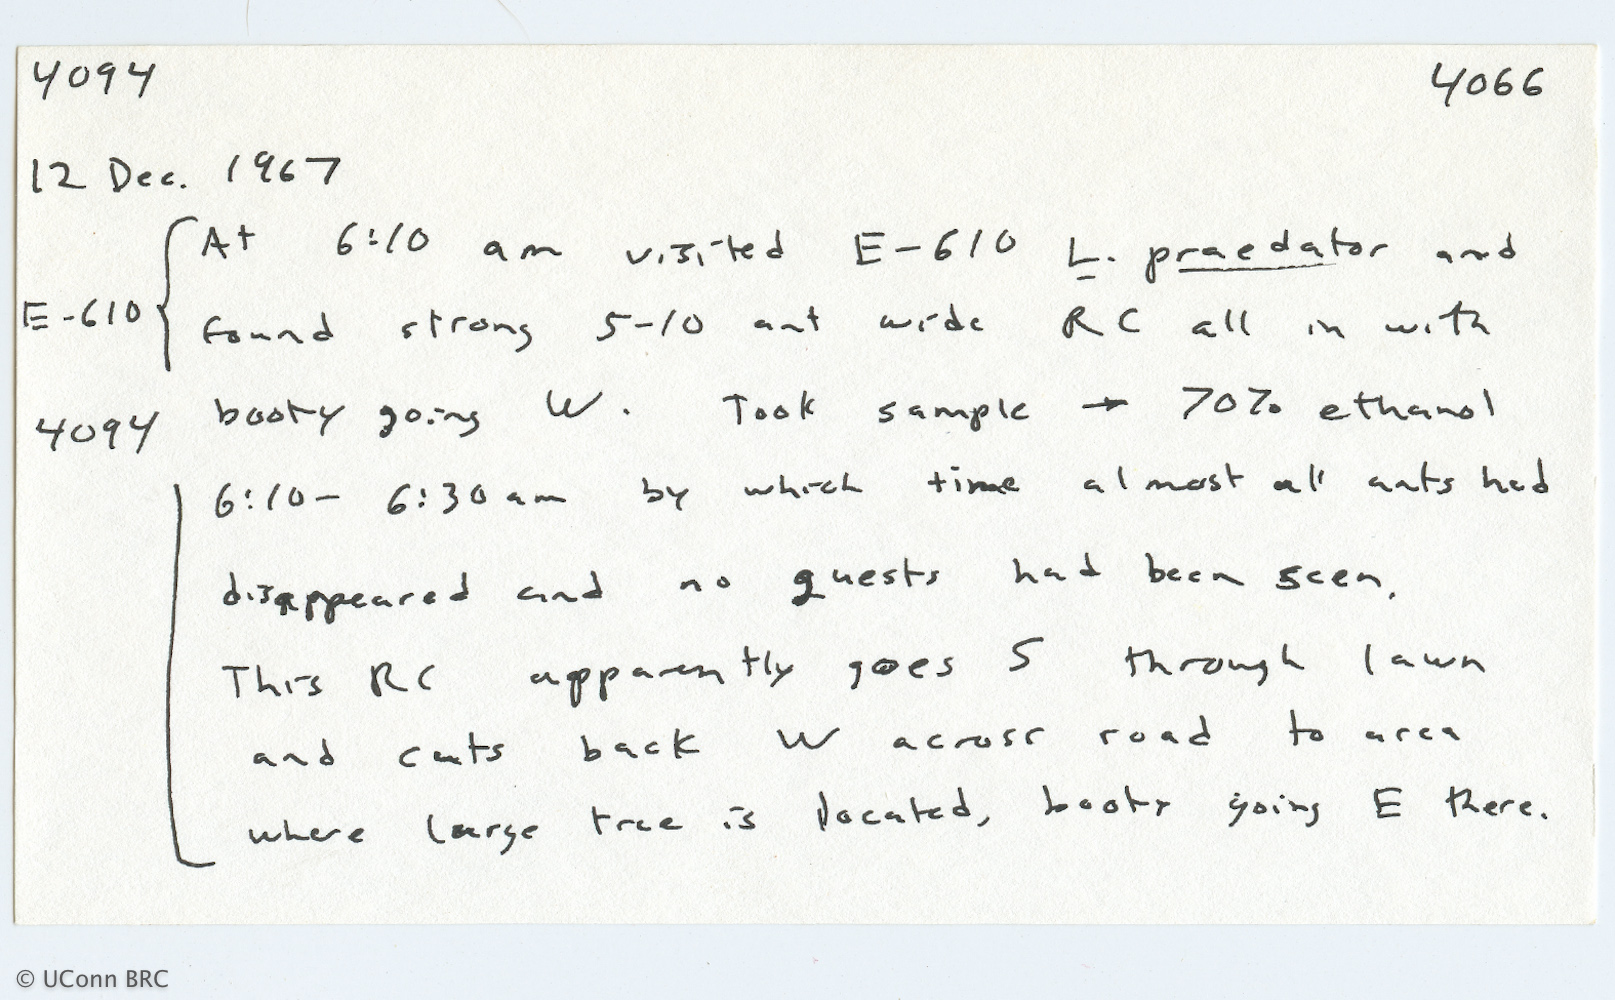 4094 4066
12 Dec. 1967
At 6:10 am visited E-610 L. praedator and
E-610 found strong 5-10 ant wide RC all in with
4094 booty going W. Took sample → 70% ethanol
6:10 - 6:30 am by which time almost all ants had
disappeared and no guests had been seen.
This RC apparently goes S through lawn
and cuts back W across road to area
where large tree is located, booty going E there.
© UConn BRC